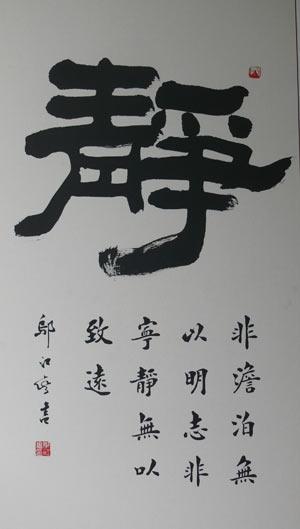 靜
非澹泊無
以明志非
寧靜無以
致遠